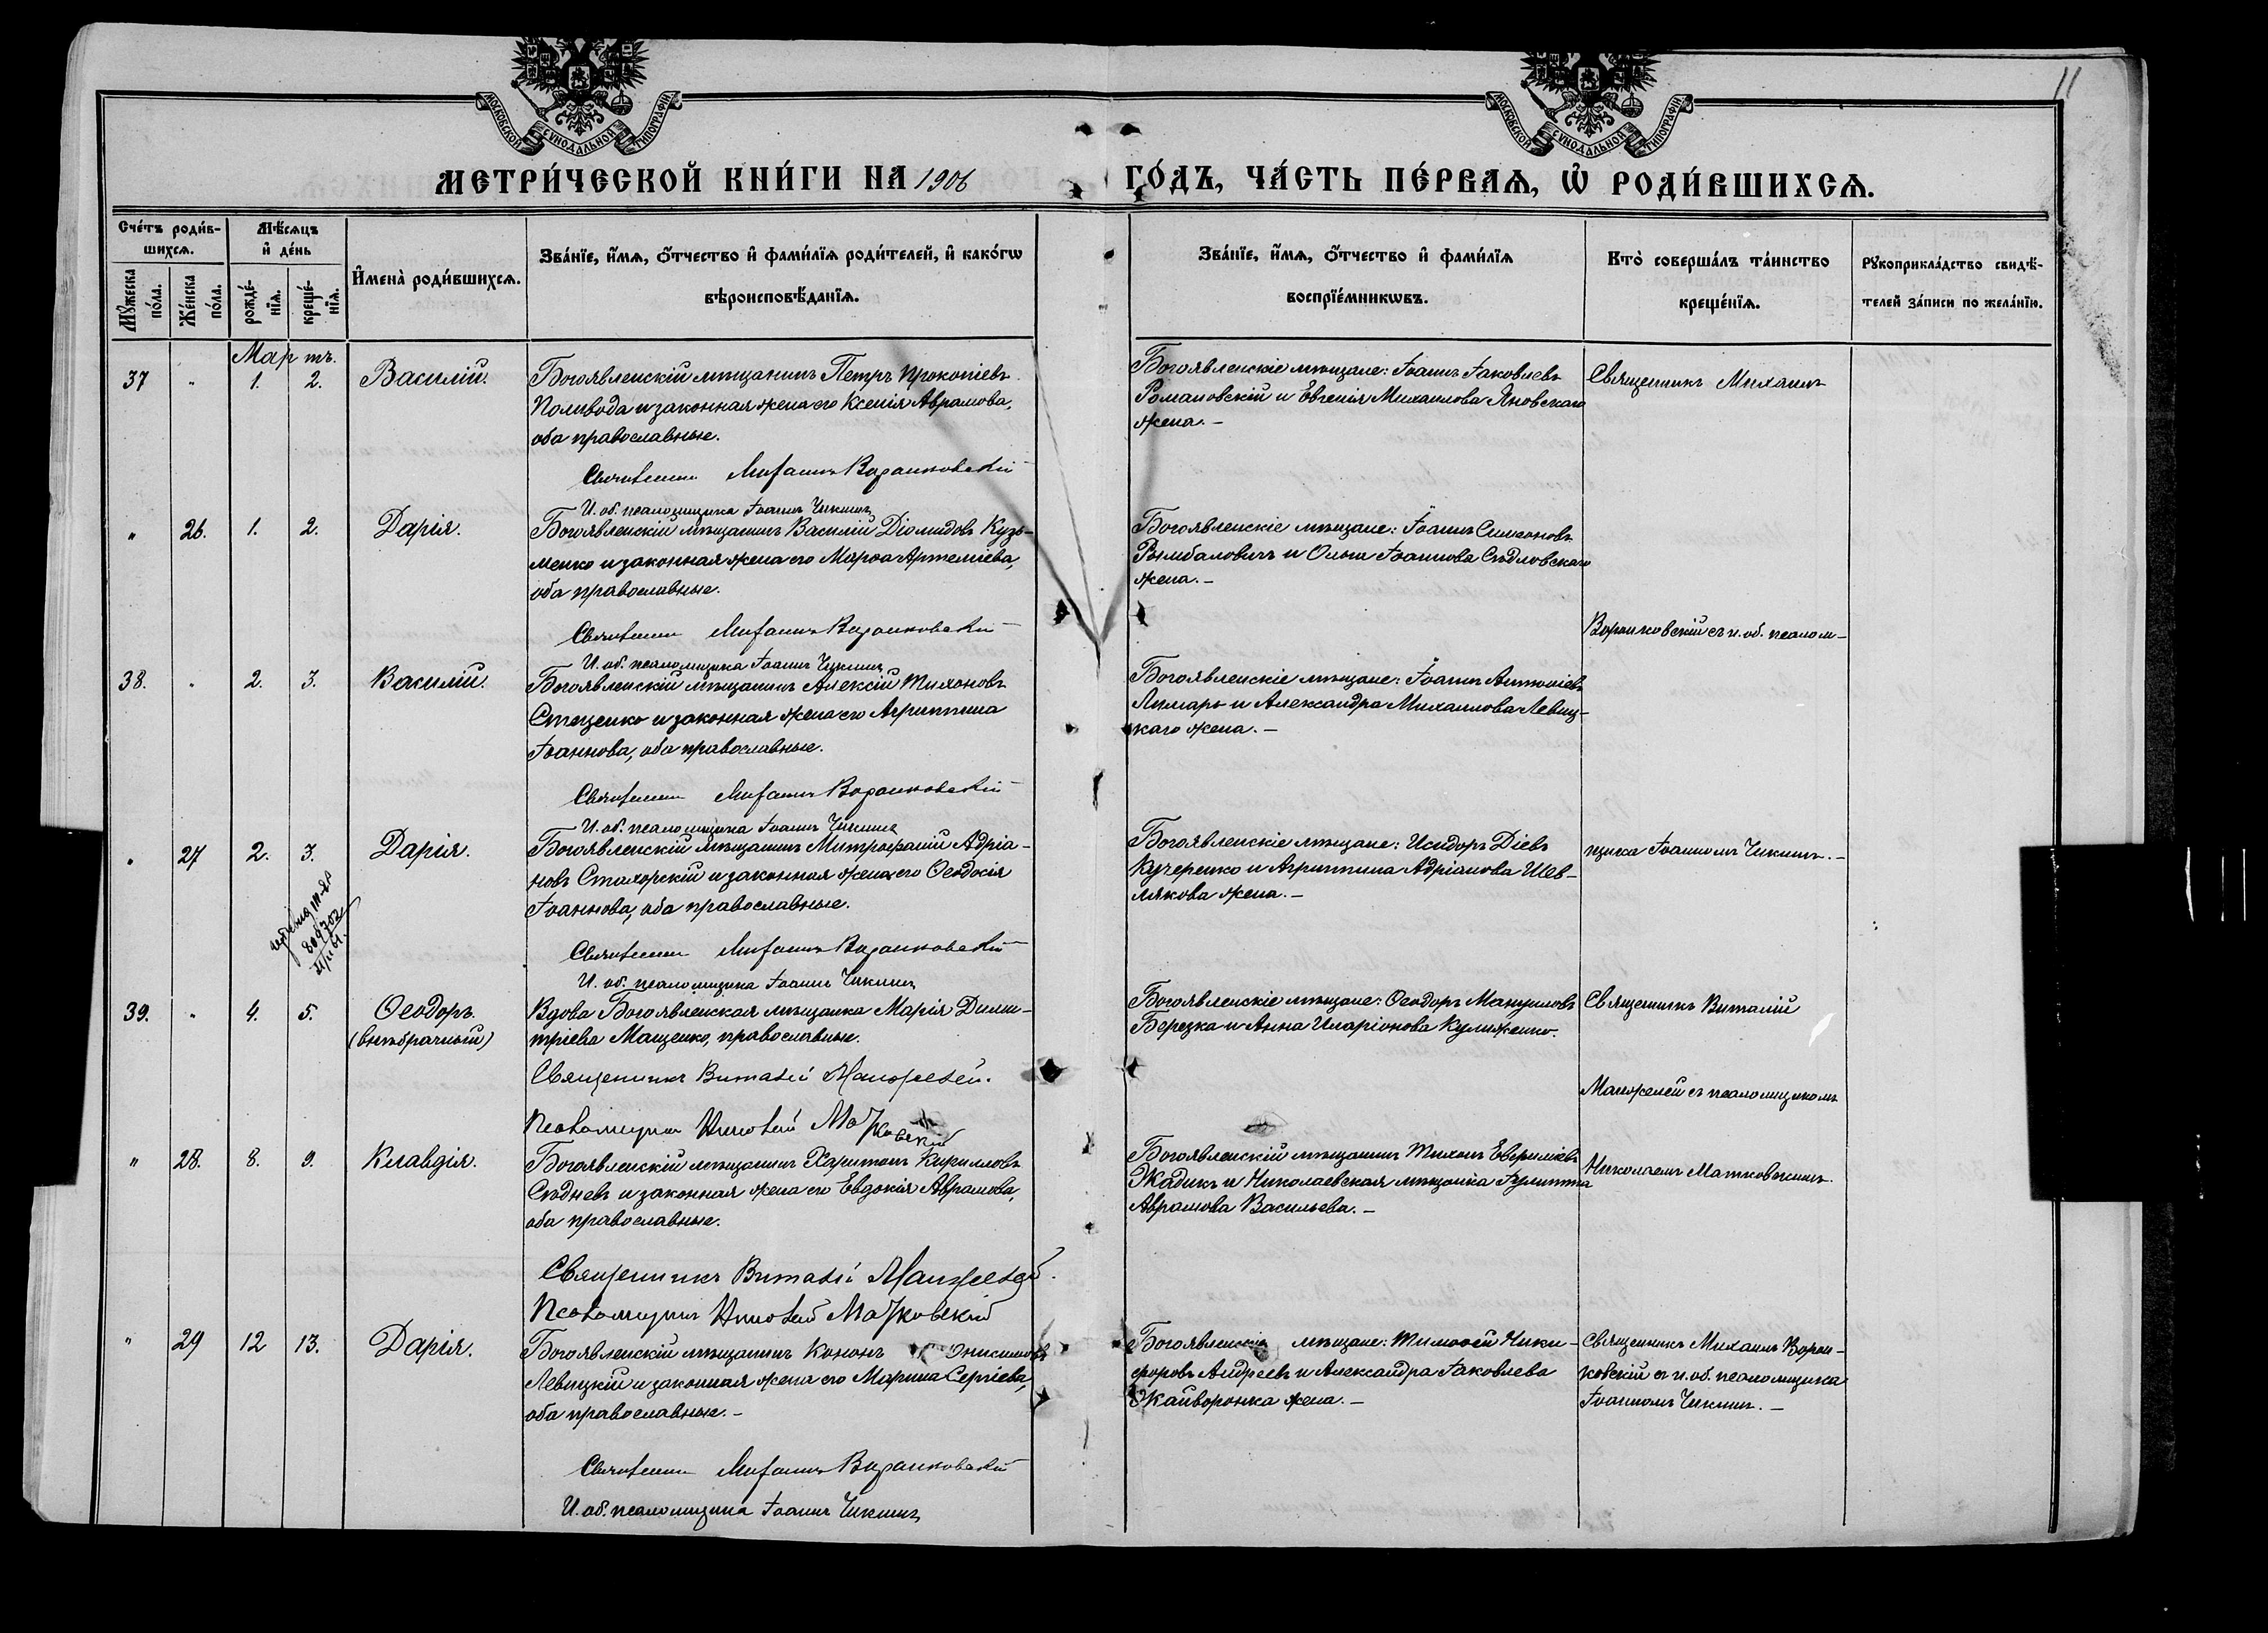 11
МОСКОВСКОЙ СУНОДАЛЬНОЙ ТИПОГРАФІИ
МОСКОВСКОЙ СУНОДАЛЬНОЙ ТИПОГРАФІИ
МЕТРИ́ЧЕСКОЙ КНИ́ГИ НА 1906 ГО́ДЪ, ЧА́СТЬ ПЕ́РВАѦ, Ѡ҆ РОДИ́ВШИХСѦ.
Сче́тъ роди́в-
шихсѧ.
Мꙋ́жеска
по́ла.
Же́нска
по́ла.
Мѣ́сѧцъ
и҆ де́нь
рожде́-
нїѧ.
креще́-
нїѧ.
И҆мена̀ роди́вшихсѧ.
Зва́нїе, и҆́мѧ, ѻ҆́тчество и҆ фами́лїѧ роди́телей, и҆ како́гѡ
вѣроисповѣ́данїѧ.
Зва́нїе, и҆́мѧ, ѻ҆́тчество и҆ фами́лїѧ
воспрїе́мникѡвъ.
Кто̀ соверша́лъ та́инство
креще́нїѧ.
Рꙋкоприкла́дство свидѣ́-
телей за́писи по жела́нїю.
Мартъ.
37 " 1. 2. Василій.
Богоявленскій мѣщанинъ Петръ Прокопіевъ
Поливода и законная жена его Ксенія Аврамова,
оба православные.
Священникъ Михаилъ Воронковскій
И. об. псаломщика Іоаннъ Чикинъ
Богоявленскіе мѣщане: Іоаннъ Іаковлевъ
Романовскій и Евгенія Михаилова Яновскаго
жена.-
Священникъ Михаилъ
" 26. 1. 2. Дарія.
Богоявленскій мѣщанинъ Василій Діомидовъ Кузь-
менко и законная жена его Марѳа Артеміева,
оба православные.
Священникъ Михаилъ Воронковскій
И. об. псаломщика Іоаннъ Чикинъ
Богоявленскіе мѣщане: Іоаннъ Симеоновъ
и Ольга Іоаннова Сѣдловскаго
жена.-
Воронковскій съ и. об. псалом-
38. " 2. 3. Василій.
Богоявленскій мѣщанинъ Алексій Тихоновъ
Стеценко и законная жена его Агриппина
Іоаннова, оба православные.
Священникъ Михаилъ Воронковскій
И. об. псаломщика Іоаннъ Чикинъ
Богоявленскіе мѣщане: Іоаннъ Антоніевъ
Лимарь и Александра Михаилова Левиц-
каго жена.-
" 27 2. 3. Дарія.
Богоявленскій мѣщанинъ Митрофаній Адріа-
новъ Стахорскій и законная жена его Ѳеодосія
Іоаннова, оба православные.
Священникъ Михаилъ Воронковскій
И. об. псаломщика Іоаннъ Чикинъ
Богоявленскіе мѣщане: Исидоръ Діевъ
Кучеренко и Агриппина Адріанова Шев-
лякова жена.-
щика Іоанномъ Чикинъ.-
39. " 4. 5. Ѳеодоръ.
(внѣбрачный)
Вдова Богоявленская мѣщанка Марія Дими-
тріева Мащенко, православные.
Священникъ Виталій Манжелей.
Псаломщикъ Николай Матковскій
Богоявленскіе мѣщане: Ѳеодоръ Мануиловъ
Березка и Анна Иларіонова Кулиженко.
Священникъ Виталій
Манжелей съ псаломщикомъ
" 28. 8. 9. Клавдія.
Богоявленскій мѣщанинъ Харитонъ Кирилловъ
Сѣдневъ и законная жена его Евдокія Аврамова,
оба православные.
Священникъ Виталій Манжелей.
Псаломщикъ Николай Матковскій
Богоявленскій мѣщанинъ Тихонъ
Жадикъ и Николаевская мѣщанка Іулитта
Аврамова Васильева.-
Николаемъ Матковскимъ.
" 29 12 13. Дарія.
Богоявленскій мѣщанинъ Кононъ Онисимовъ
Левицкій и законная жена его Марина Сергіева,
оба православные.-
Священникъ Михаилъ Воронковскій
И. об. псаломщика Іоаннъ Чикинъ
Богоявленскіе мѣщане: Тимоѳей Ники-
форовъ Андреевъ и Александра Іаковлева
Жайворонка жена.-
Священникъ Михаилъ Ворон-
ковскій съ и. об. псаломщика
Іоанномъ Чикинъ.-